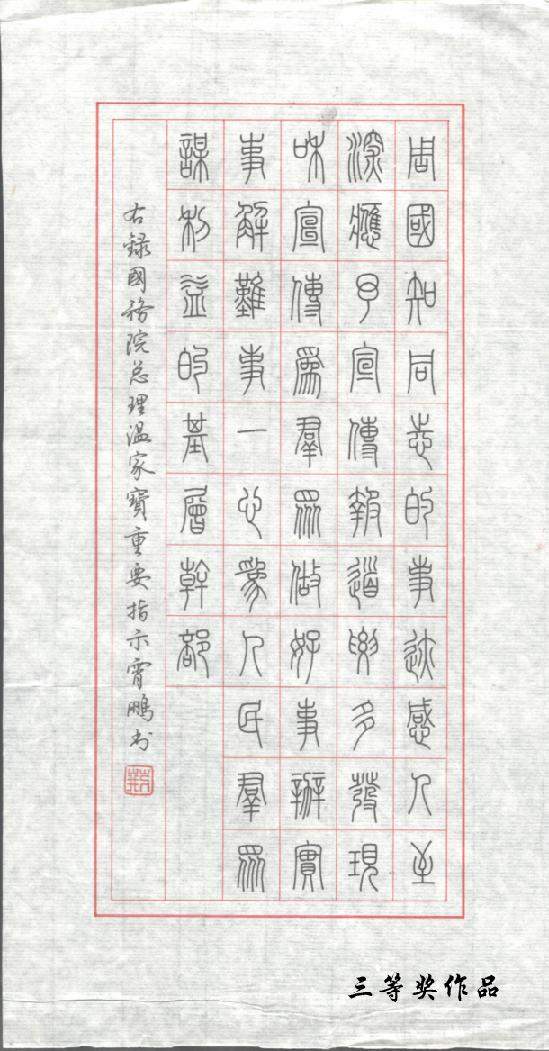 周國知同志的事迹感人至
深應予宣傳報道要多發現
和宣傳爲羣眾做好事辦實
事解難事一心爲人民羣眾
謀利益的基層幹部
右録國務院总理温家寶重要指示宵鵬书
三等奖作品